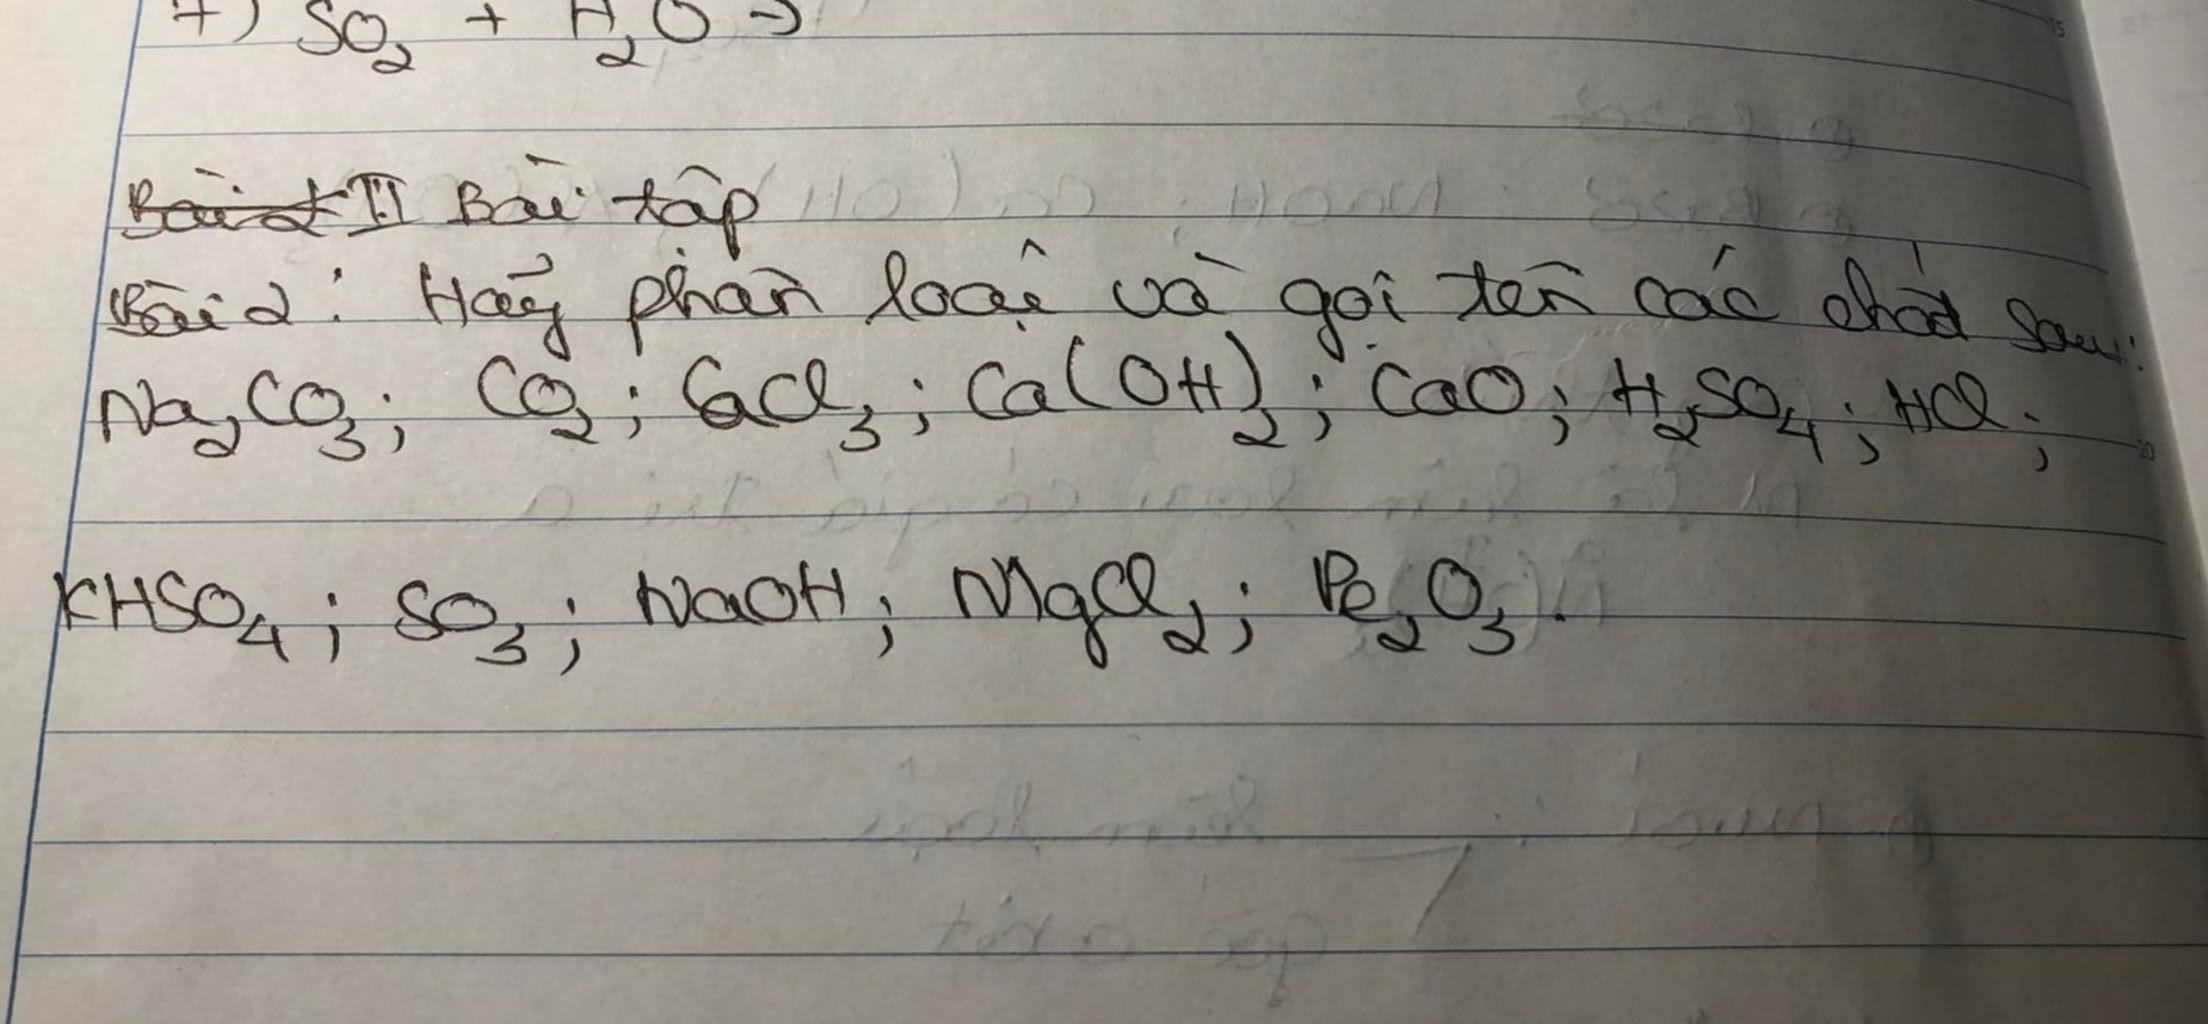 7) SO₂ + H₂O →
Bài 2 II Bài tập
Bài 2: Hãy phân loại và gọi tên các chất sau:
Na₂CO₃; CO₂; CaCl₃; Ca(OH)₂; CaO; H₂SO₄; HCl;
KHSO₄; SO₃; NaOH; MgCl₂; Fe₂O₃.